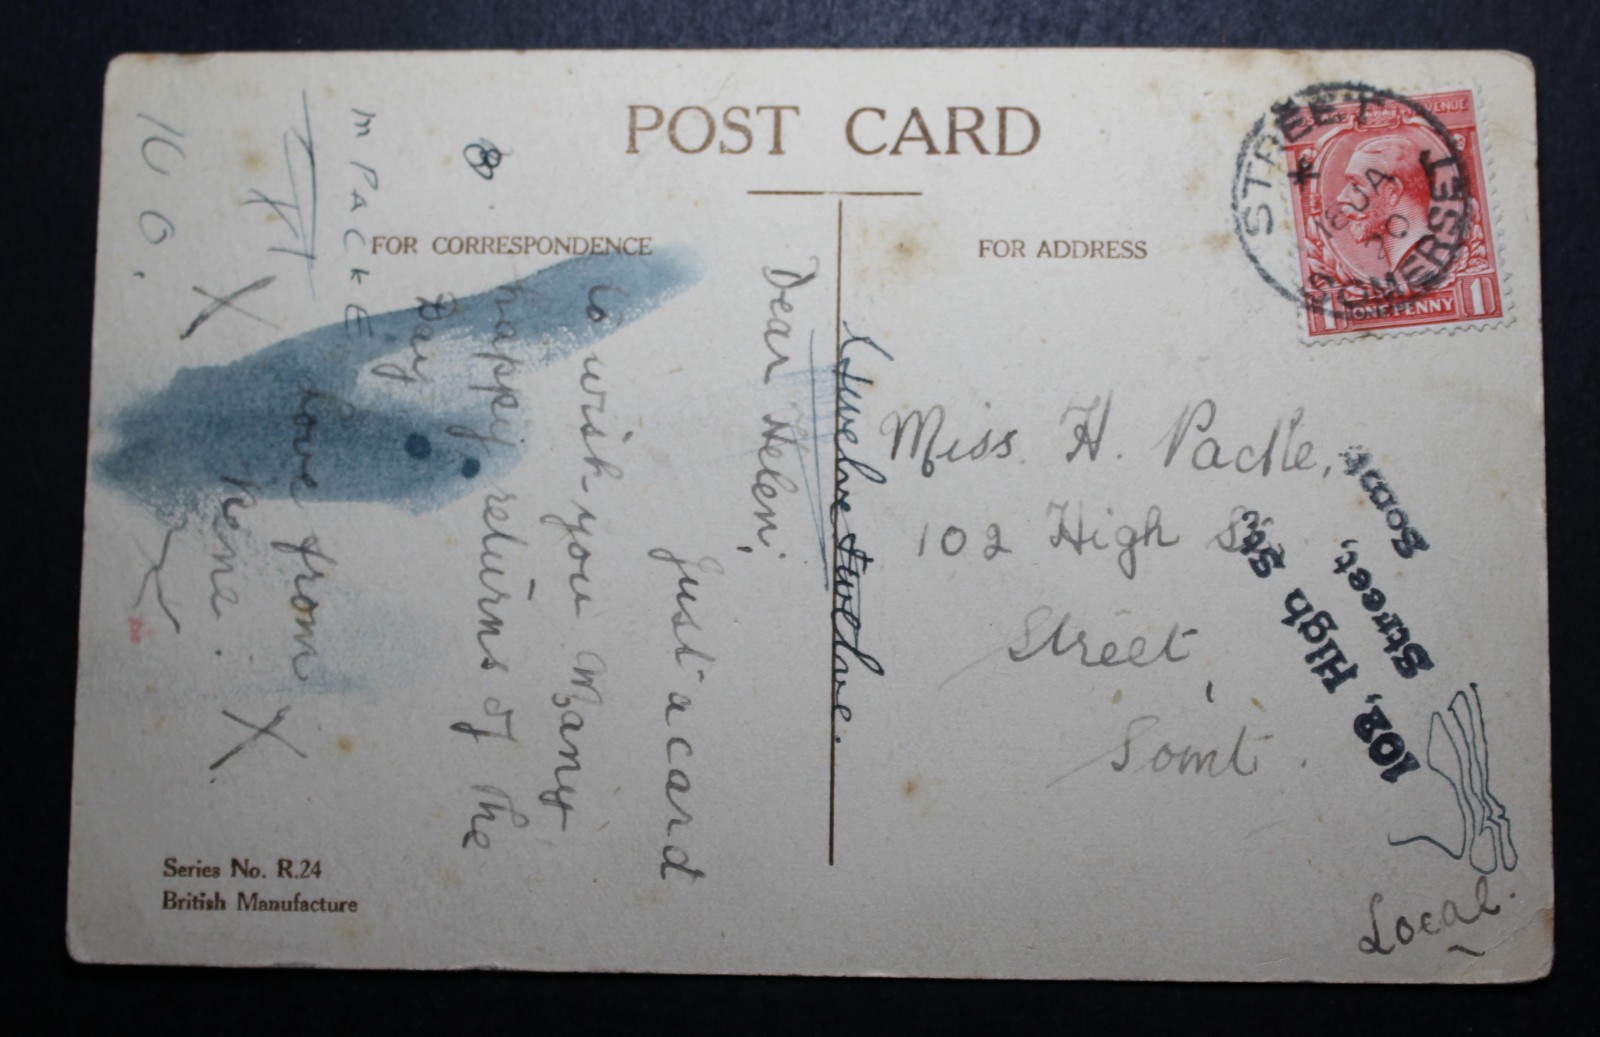 POST CARD
FOR CORRESPONDENCE
FOR ADDRESS
STREET
18 JA
20
SOMERSET
ONE PENNY
1 1
Dear Helen,
Just a card
to wish you Many
happy returns of the
Day
Love from
Rene.
X X
M PACKE
8
Twelve twelve.
Miss. H. Packe,
102 High St.
Street,
Somt.
Local.
102, High St.
Street,
Somt.
Series No. R.24
British Manufacture